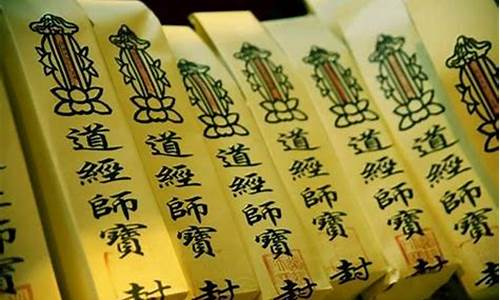 道經師寶封
道經師寶封
道經師寶封
道經師寶封
道經師寶封
道經師寶封